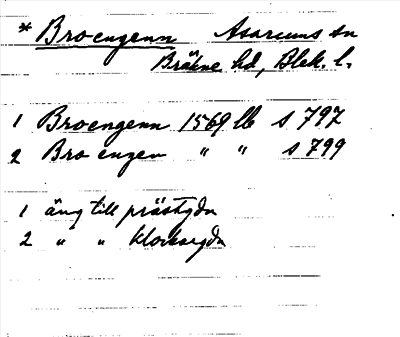 * Broengenn Asarums sn
Bräkne hd, Blek. l.
1 Broengenn 1569 lb s 797
2 Bro engen " " s 799
1 äng till prästgdn
2 " " klockaregdn